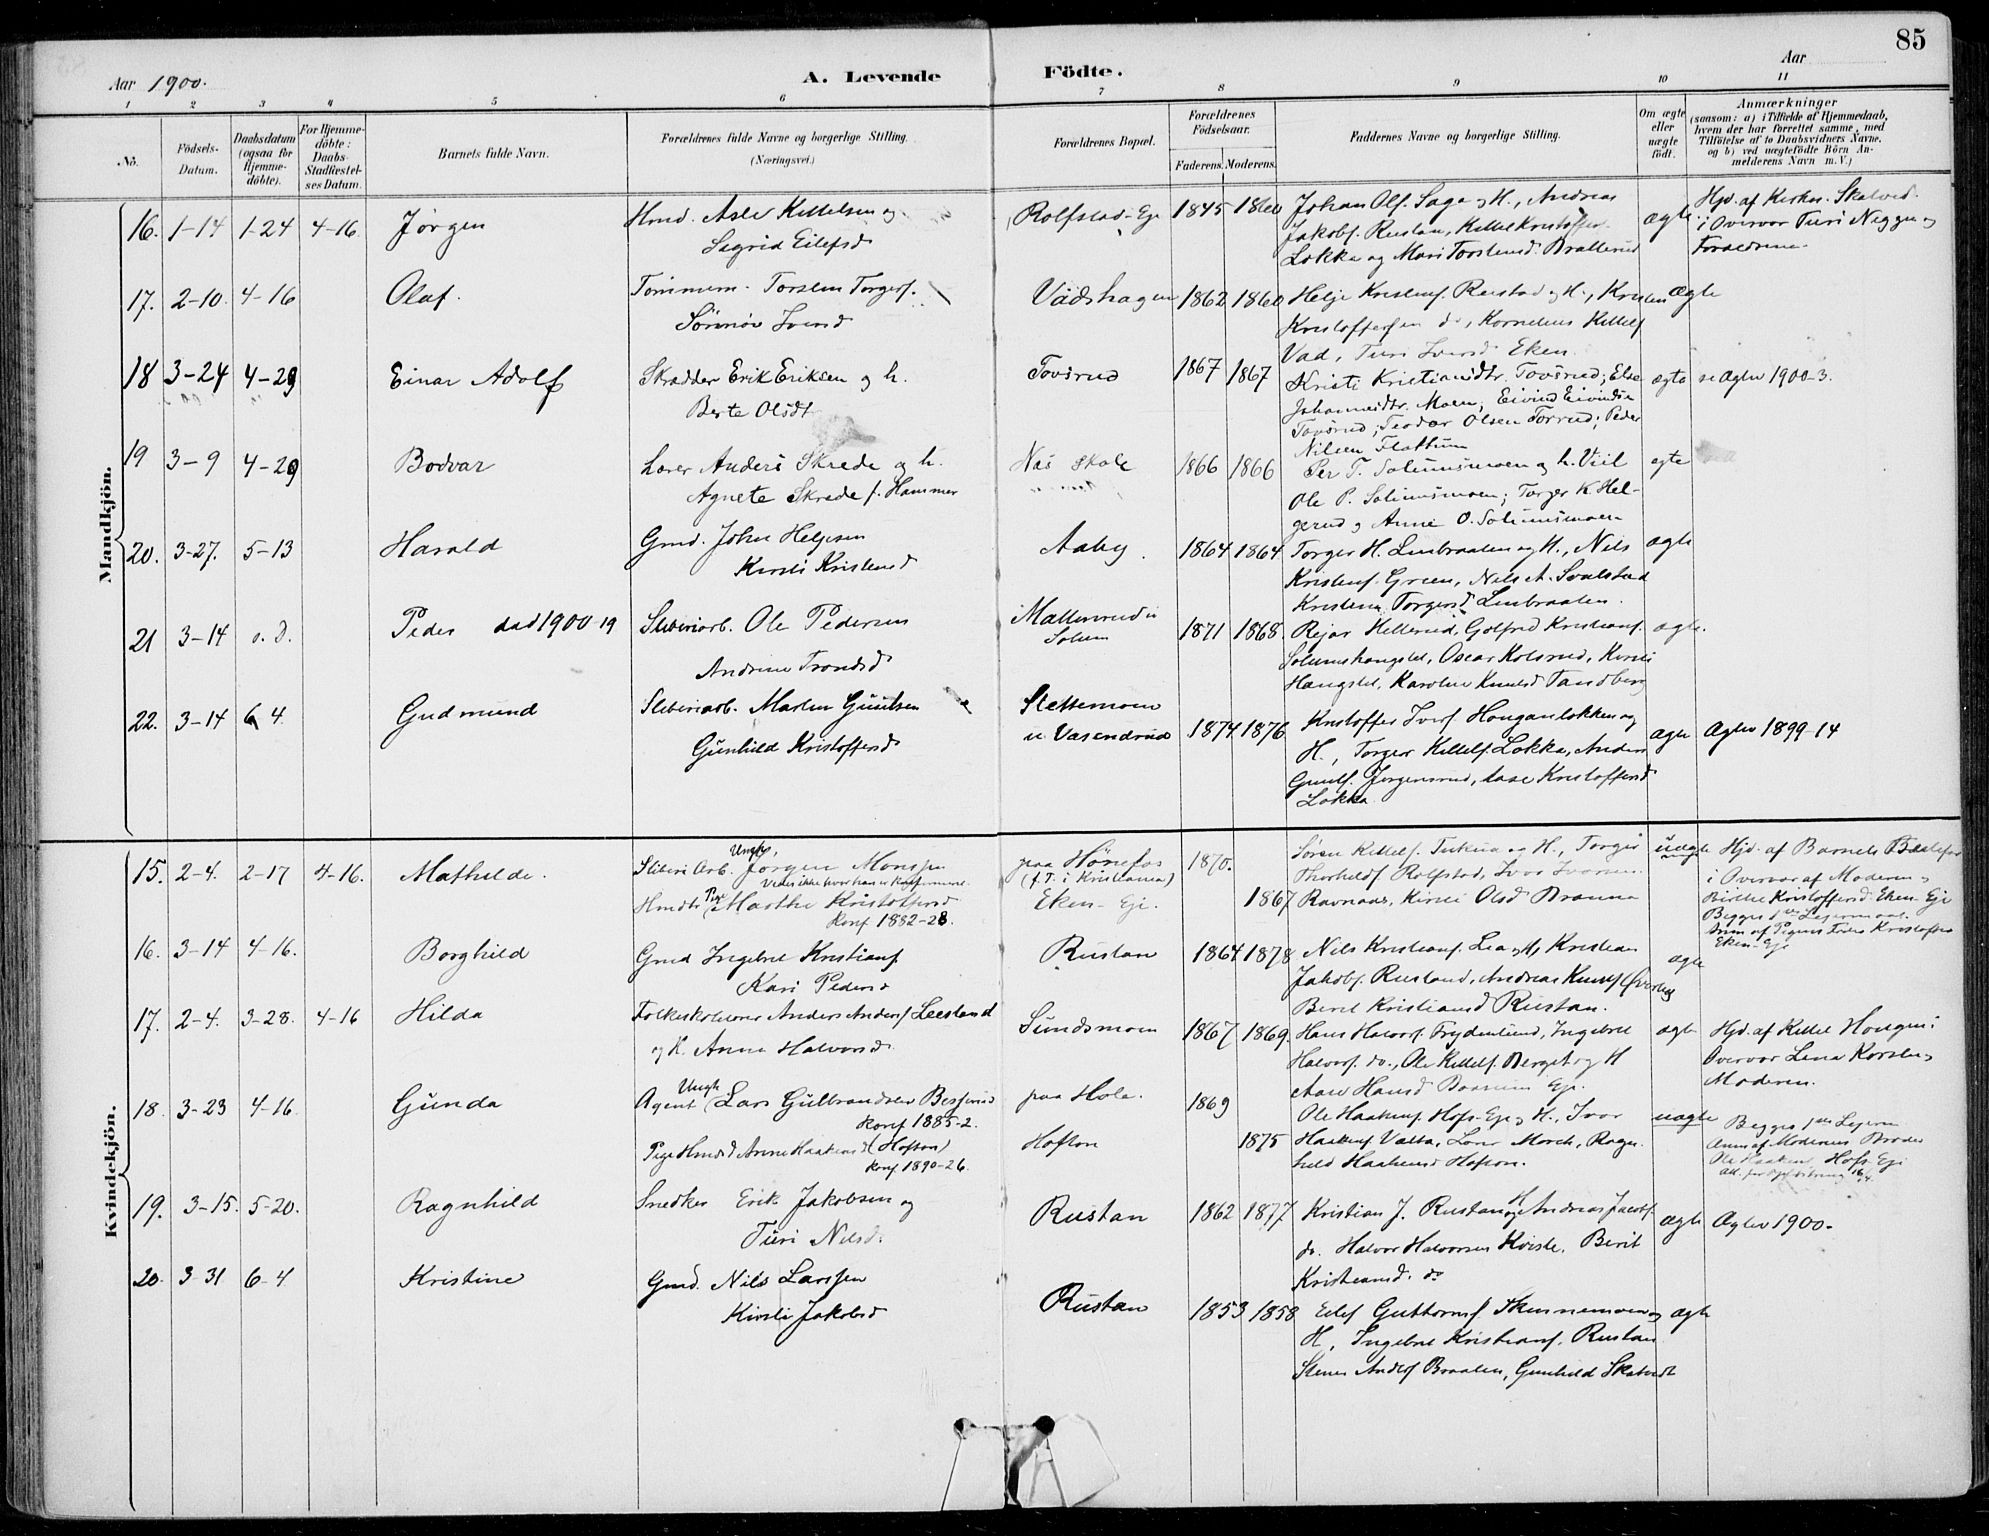 85
Aar 1900.
A. Levende Födte.
Aar
1 2 3 4 5 6 7 8 9 10 11
No.
Födsels-Datum.
Daabsdatum (ogsaa for Hjemme-döbte).
For Hjemme-döbte: Daabs-Stadfæstel-ses Datum.
Barnets fulde Navn.
Forældrenes fulde Navne og borgerlige Stilling.
(Næringsvei.)
Forældrenes Bopæl.
Forældrenes Födselsaar.
Faderens. Moderens.
Faddernes Navne og borgerlige Stilling.
Om ægte eller uægte födt.
Anmærkninger
(saasom: a) i Tilfælde af Hjemmedaab,
hvem der har forrettet samme, med
Tilföielse af to Daabsvidners Navne,
og b) ved uægtefödte Börn An-
melderens Navn m. V.)
Mandkjön.
16. 1-14 1-24 4-16 Jørgen
Hmd. Asle Kittelsen og
Sigrid Eilefsd
Rolfstad-Eje 1845 1860
Johan Olf. Saga og H., Andreas
Jakobf. Rustan, Kittel Kristoffer
Løkka og Mari Torstensd Bratterud
ægte
Hjd. af Kirkes. Skatved
i Overvær Turi Naggen og
Forældrene.
17. 2-10. 4-16 Olaf.
Tømmerm. Torsten Torgerf.
Sønnøv Iversd
Vadshagen 1862 1860
Helje Kristenf. Rustad og H., Kristen
Kristoffersen do, Kornelius Kittelf
Vad, Turi Iversd Eken
ægte
18 3-24 4-29 Einar Adolf
Skrædder Erik Eriksen og h.
Berte Olsdt
Tovsrud 1867 1867
Kristi Kristiansdtr. Tovsrud; Else
Johannesdtr. Moen; Eivind Eivindsen
Tovsrud; Teodor Olsen Tovrud; Peder
Nilsen Flattum
ægte
se Aglev 1900-3.
19 3-9 4-29 Bodvar
Lærer Anders Skrede og h.
Agnete Skrede f. Hammer
Næs skole 1866 1866
Per T. Solumsmoen og h. Viil
Ole P. Solumsmoen; Torger K. Hel-
gerud og Anne O. Solumsmoen
egte
20. 3-27. 5-13 Harald
Gmd. John Helgesen
Kirsti Kristensd
Aaby. 1864 1864
Torger H. Linbraaten og H., Nils
Kristenf. Green, Nils A. Svalstad
Kristena Torgersd Linbraaten.
ægte
21 3-14 s. d. Peder død 1900-19
Sliberiarb. Ole Pedersen
Andrine Trondsd
Møllerrud u
Solum
1871 1868
Rejar Hellerud, Golfred Kristianf.
Solumshaugstel, Oscar Kolsrud, Kirsti
Haugstel, Karoline Knudsd Tandberg
ægte.
22. 3-14 6 4. Gudmund
Sliberiarb. Martin Gulliksen
Gunhild Kristoffersd
Slettemoen
u Væsendrud
1874 1876
Kristoffer Iverf Houganløkken og
H., Torger Kittelf. Løkka, Anders
Gundf. Jørgensrud, Aase Kristoffersd
Løkka.
ægte
Aglev 1899-14
Kvindekjön.
15. 2-4. 2-17 4-16. Mathilde.
Ungk.
Sliberi Arb. Jørgen Monsen
Vides ikke hvor han er konfirmeret.
Hmdtr Pige Marthe Kristoffersd
Konf 1882-28.
paa Hønefos
(f. T. i Kristiania)
Eken-Eje.
1870.
1867
Søren Kittelf. og H., Torger
Thorkeldf Rolfstad, Ivar Ivarsen
Ravnaas, Kirsti Olsd Braana
uægte
Hjd. af Barnets Bedstefar
i Overvær af Moderen og
Birthe Kristoffersd Eken-Eje
Begges 1ste Lejermaal.
Anm af Pigens Fader Kristoffer
Eken-Eje
16. 3-14 4-16. Borghild
Gmd Ingebret Kristianf
Kari Pedersd
Rustan 1864 1878
Nils Kristianf. Lia og H, Kristian
Jakobf. Rustand, Andreas Knudsf Øverby
Berit Kristiansd Rustan.
ægte
17. 2-4. 3-28. 4-16 Hilda
Folkeskolelærer Anders Andersf Leesland
og H. Anna Halvorsd
Sundsmoen 1867 1869.
Hans Halvorf. Frydenlund, Ingebret
Halvorf. do., Ole Kittelf. Berget og H
Aase Hansd Baarum Eje.
ægte
Hjd. af Kittel Hougen i
Overvær Lina Korslien og
Moderen.
18. 3-23 4-16. Gunda
Agent Ungk. (Lars Gulbrandsen Besserud
Konf 1885-2.
Pige Hmd Anne Haakensd (Hofton)
Konf 1890-26.
paa Hole.
Hofton
1869
1875
Ole Haakenf. Hofs-Eje og H., Ivar
Haakenf. Valta, Lone Morch, Ragn-
hild Haakensd Hofton.
uægte
Begges 1ste Lejerm
Anm af Moderens Broder
Ole Haakens. Hofs-Eje
19. 3-15. 5-20. Ragnhild
Snedker Erik Jakobsen og
Turi Nilsd.
Rustan 1862 1877
Kristian J. Rustan og H Andreas Jacobf
do. Halvor Halvorsen Kviste, Berit
Kristiansd. do
ægte
Aglev 1900-
20. 3-31 6-4 Kristine
Gmd. Nils Larssen
Kirsti Jakobsd
Rustan 1853 1858
Eilef Guttormsf Skinnemoen og
H, Ingebret Kristianf. Rustan
Stener Andersf Braaten, Gunhild Skatvedt
ægte